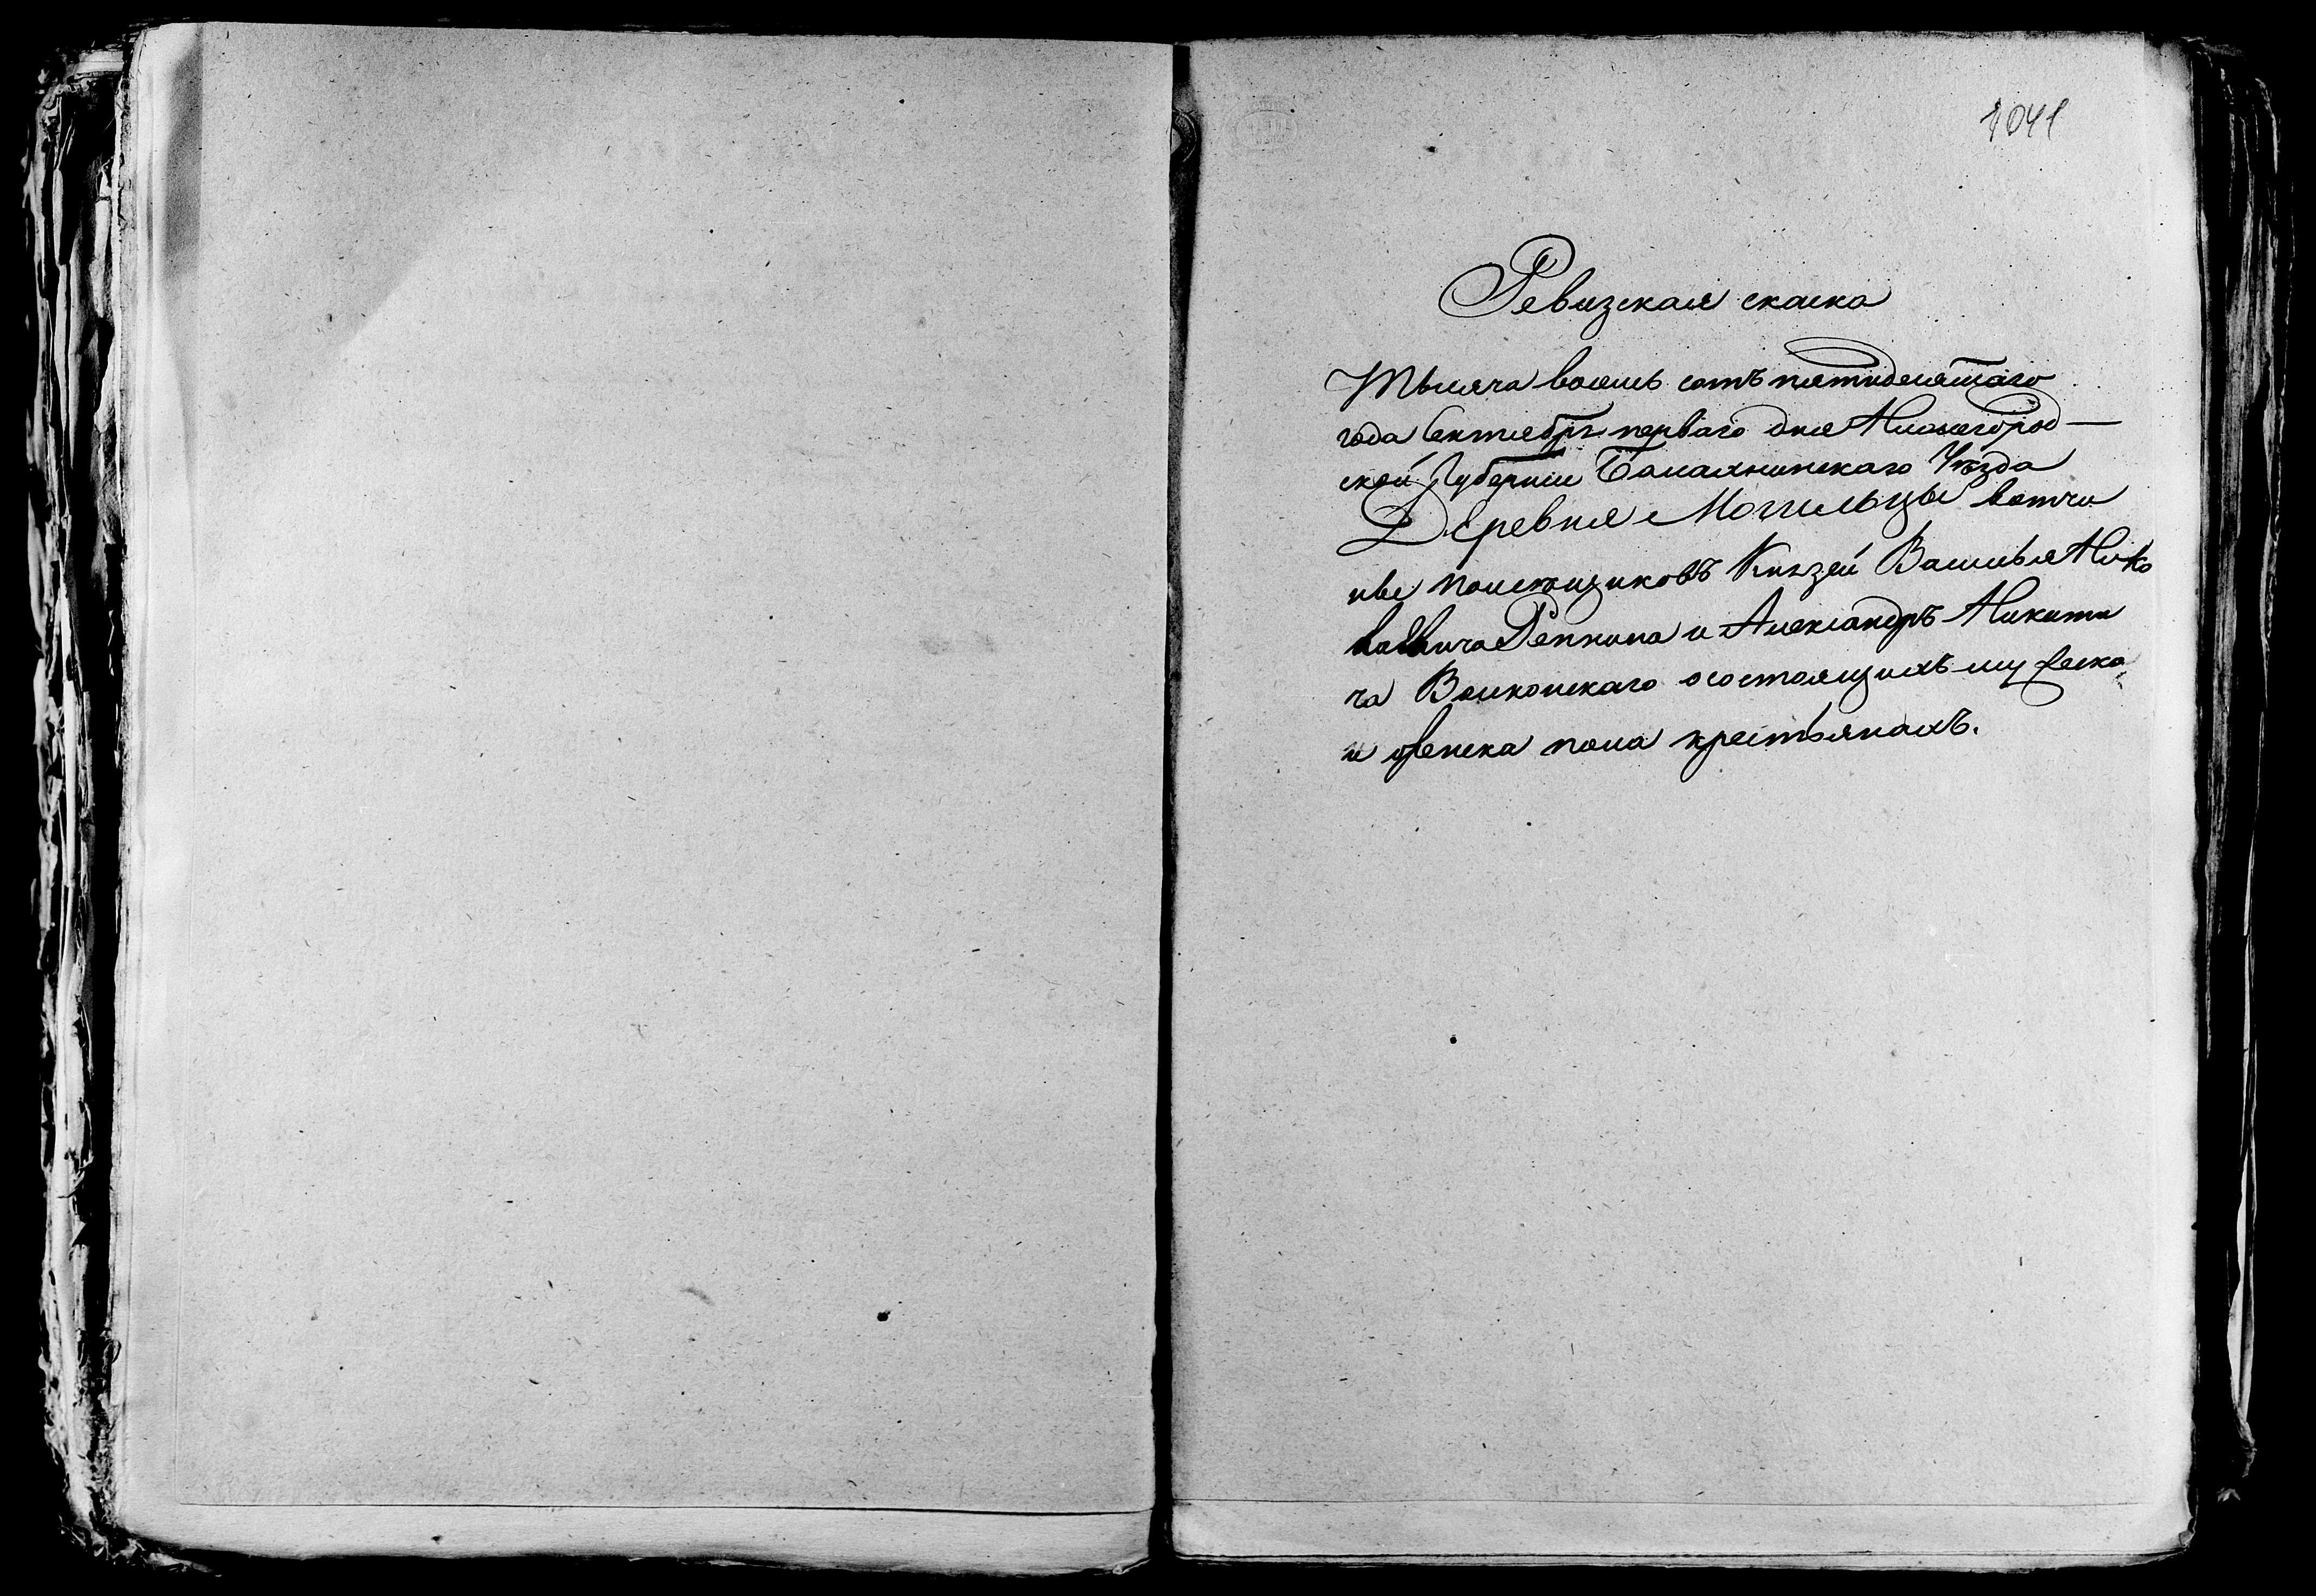 1041
Ревизская скаска
Тысяча восемь сотъ пятидесятаго
года Сентября перваго дня Нижегород-
ской Губернии Балахнинскаго Уезда
Деревня Могильцы вотчи
ны помещиковъ Князей Василья Нико
лаевича Репнина и Александръ Никити
ча Волконскаго осостоящихъ мужеска
и женска пола крестьянахъ.